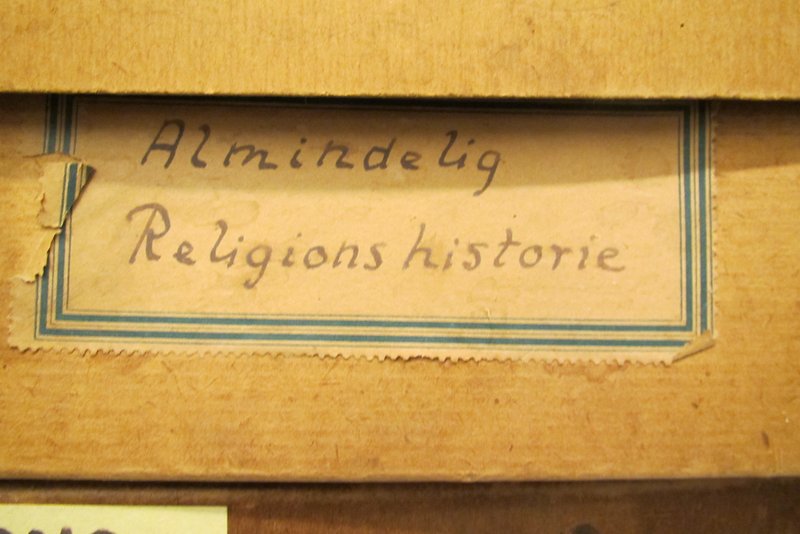 Almindelig
Religions historie